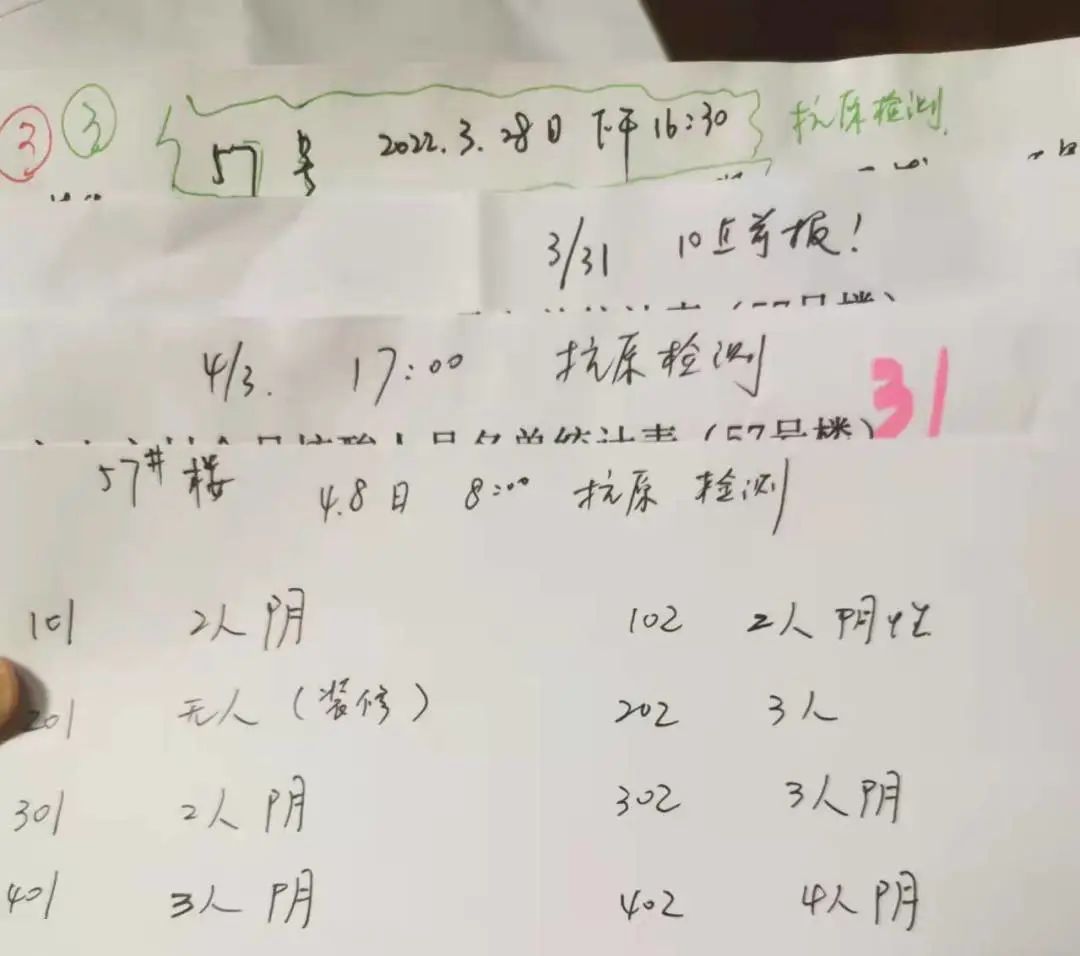 ③ ③ 57号 2022.3.28日 下午16:30 抗原检测
3/31 10点前报!
4/3. 17:00 抗原检测
31
人员名单统计表(57号楼)
57#楼 4.8日 8:00 抗原 检测
101 2人阴 102 2人阴性
201 无人(装修) 202 3人
301 2人阴 302 3人阴
401 3人阴 402 4人阴